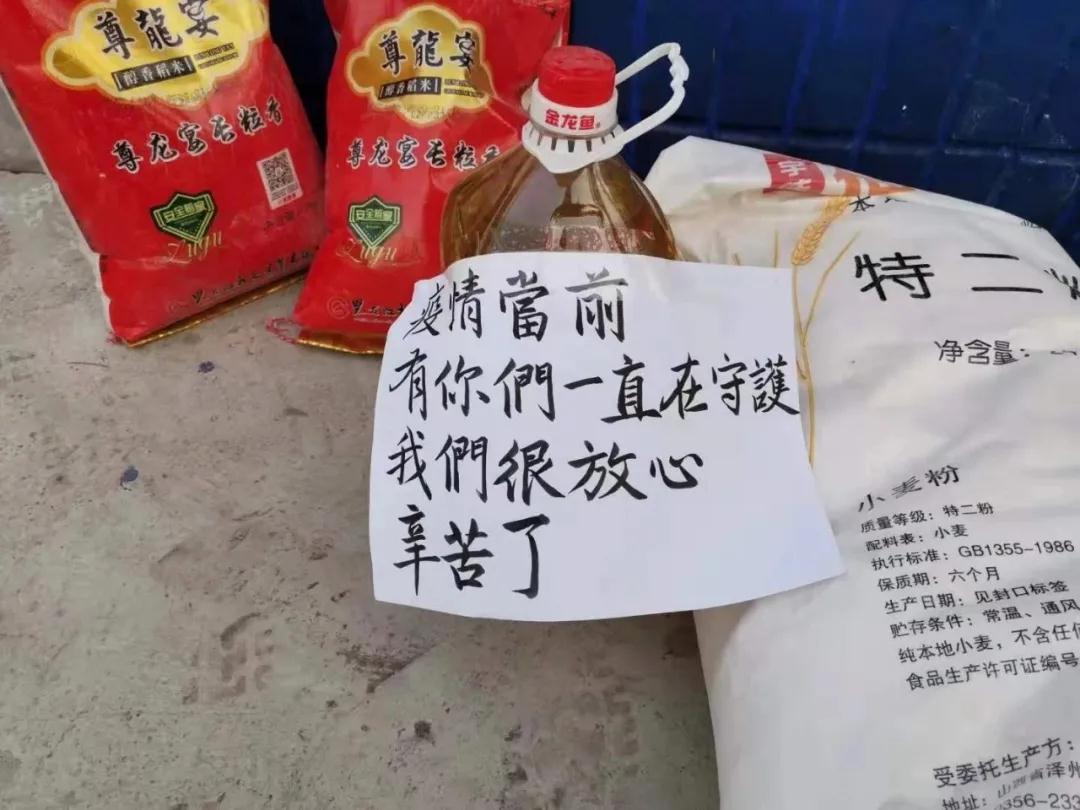 尊龍宴
醇香稻米
尊龙宴长粒香
安全粮窗
Zugu
尊龍宴
醇香稻米
尊龙宴长粒香
Zugu
金龙鱼
疫情當前
有你們一直在守護
我們很放心
辛苦了
特二
净含量:
小麦粉
质量等级:特二粉
配料表:小麦
执行标准:GB1355-1986
保质期:六个月
生产日期:见封口标签
贮存条件:常温、通风
纯本地小麦,不含任何
食品生产许可证编号
受委托生产方:
地址:山西省泽州